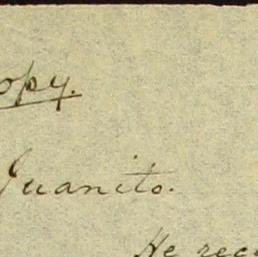 opy.
Juanito.
He rec